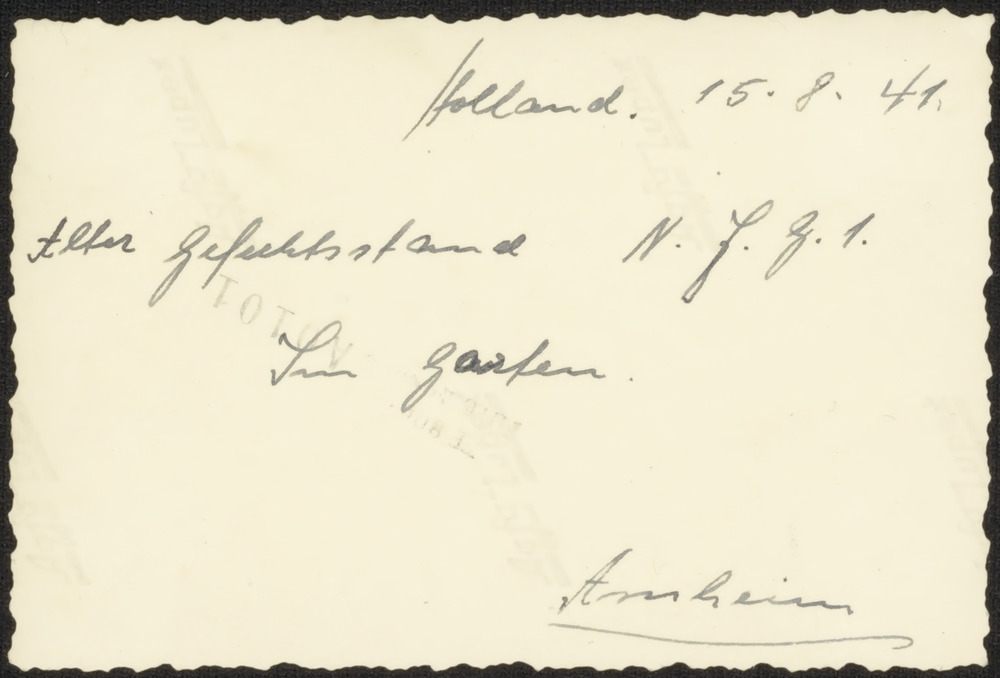 Holland. 15. 8. 41.
Alter Gefechtsstand N. J. G. 1.
Im Garten.
Arnheim